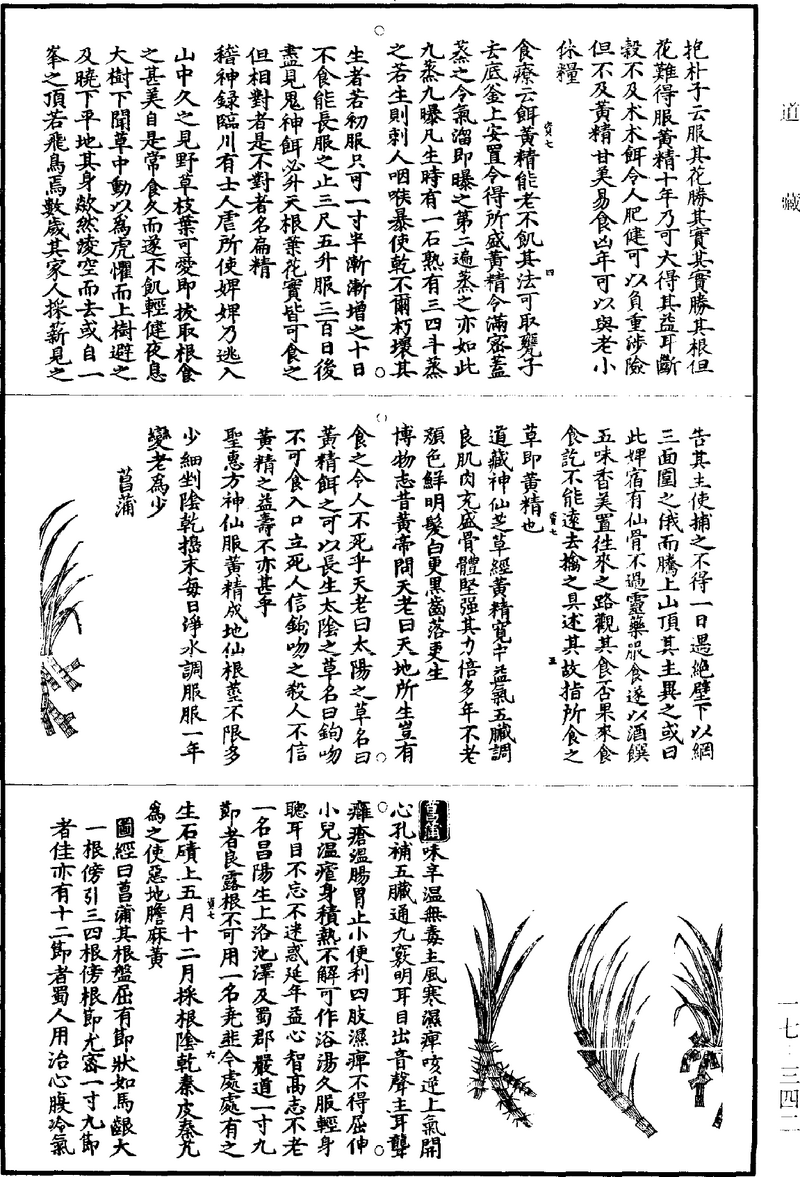 道藏
抱朴子云服其花勝其實其實勝其根但
花難得服黃精十年乃可大得其益耳斷
穀不及朮朮餌令人肥健可以負重涉險
但不及黃精甘美易食凶年可以與老小
休糧
食療云餌黃精能老不飢其法可取甕子
去底釜上安置令得所盛黃精令滿密蓋
蒸之令氣溜即曝之第二遍蒸之亦如此
九蒸九曝凡生時有一石熟有三四斗蒸
之若生則刺人咽喉暴使乾不爾朽壞其
生者若初服只可一寸半漸漸增之十日
不食能長服之止三尺五升服三百日後
盡見鬼神餌必升天根葉花實皆可食之
但相對者是不對者名扁精
稽神録臨川有士人虐所使婢婢乃逃入
山中久之見野草枝葉可愛即拔取根食
之甚美自是常食久而遂不飢輕健夜息
大樹下聞草中動以爲虎懼而上樹避之
及曉下平地其身欻然凌空而去或自一
峯之頂若飛鳥焉數歲其家人採薪見之
告其主使捕之不得一日遇絶壁下以網
三面圍之俄而騰上山頂其主異之或曰
此婢宿有仙骨不過靈藥服食遂以酒饌
五味香美置往來之路觀其食否果來食
食訖不能遠去擒之具述其故指所食之
草即黃精也
道藏神仙芝草經黃精寬中益氣五臟調
良肌肉充盛骨體堅强其力倍多年不老
顔色鮮明髮白更黑齒落更生
博物志昔黃帝問天老曰天地所生豈有
食之令人不死乎天老曰太陽之草名曰
黃精餌之可以長生太陰之草名曰鉤吻
不可食入口立死人信鉤吻之殺人不信
黃精之益壽不亦甚乎
聖惠方神仙服黃精成地仙根莖不限多
少細剉陰乾搗末每日淨水調服服一年
變老爲少
菖蒲
菖蒲味辛温無毒主風寒濕痺咳逆上氣開
心孔補五臟通九竅明耳目出音聲主耳聾
癰瘡溫腸胃止小便利四肢濕痺不得屈伸
小兒温瘧身積熱不解可作浴湯久服輕身
聰耳目不忘不迷惑延年益心智高志不老
一名昌陽生上洛池澤及蜀郡嚴道一寸九
節者良露根不可用一名堯韭今處處有之
生石磧上五月十二月採根陰乾秦皮秦艽
爲之使惡地膽麻黃
圖經曰菖蒲其根盤屈有節狀如馬䩭大
一根傍引三四根傍根節尤密一寸九節
者佳亦有十二節者蜀人用治心腹冷氣
一七三四二